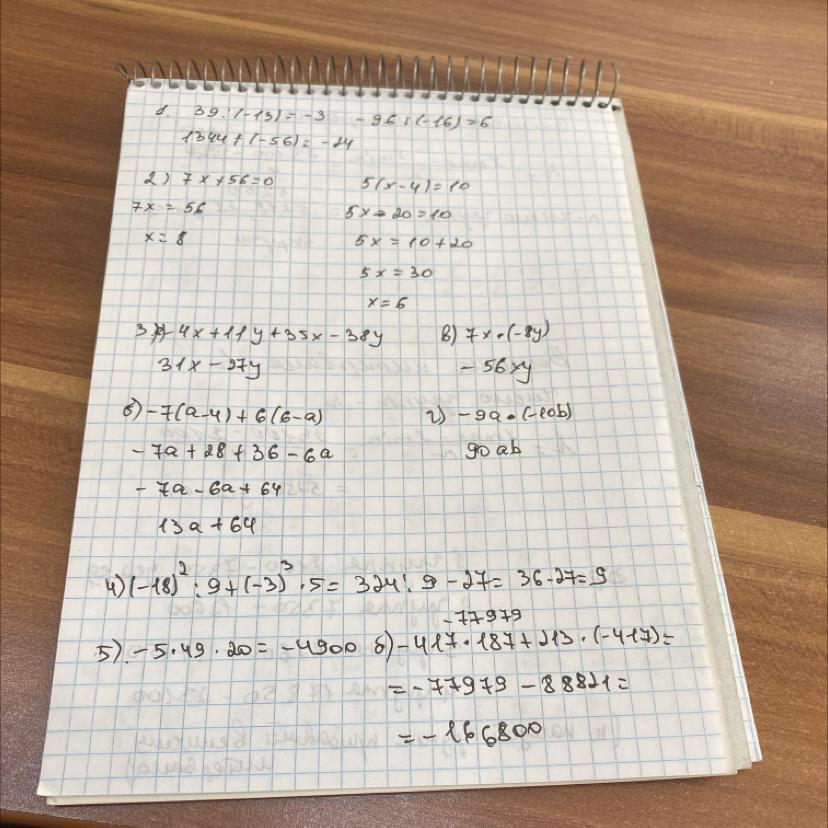 1. 39:(-13)=-3 -96:(-16)=6
1344:(-56)=-24
2) 7x+56=0 5(x-4)=10
7x=56 5x-20=10
x=8 5x=10+20
5x=30
x=6
3) а) -4x+11y+35x-38y в) 7x·(-8y)
31x-27y -56xy
б) -7(a-4)+6(6-a) г) -9a·(-10b)
-7a+28+36-6a 90ab
-7a-6a+64
13a+64
4) (-18)²:9+(-3)³·5= 324:9-27=36-27=9
-77979
5). -5·49·20=-4900 б) -417·187+213·(-417)=
=-77979-88821=
=-166800